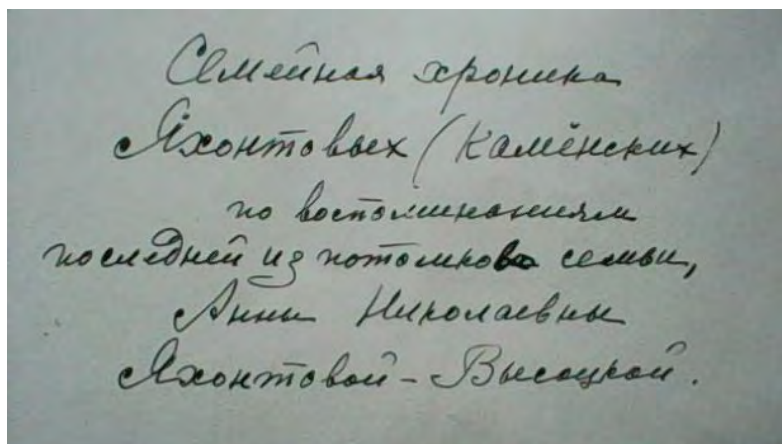 Семейная хроника
Яхонтовых (Камёнских)
по воспоминаниям
последней из потомков семьи,
Анны Николаевны
Яхонтовой-Высоцкой.